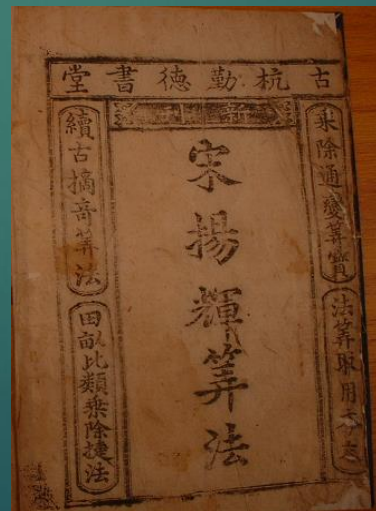 古杭勤德書堂
新
乗除通變筭寳
法筭取用本末
宋揚輝筭法
續古摘竒筭法
田畝比類乗除捷法